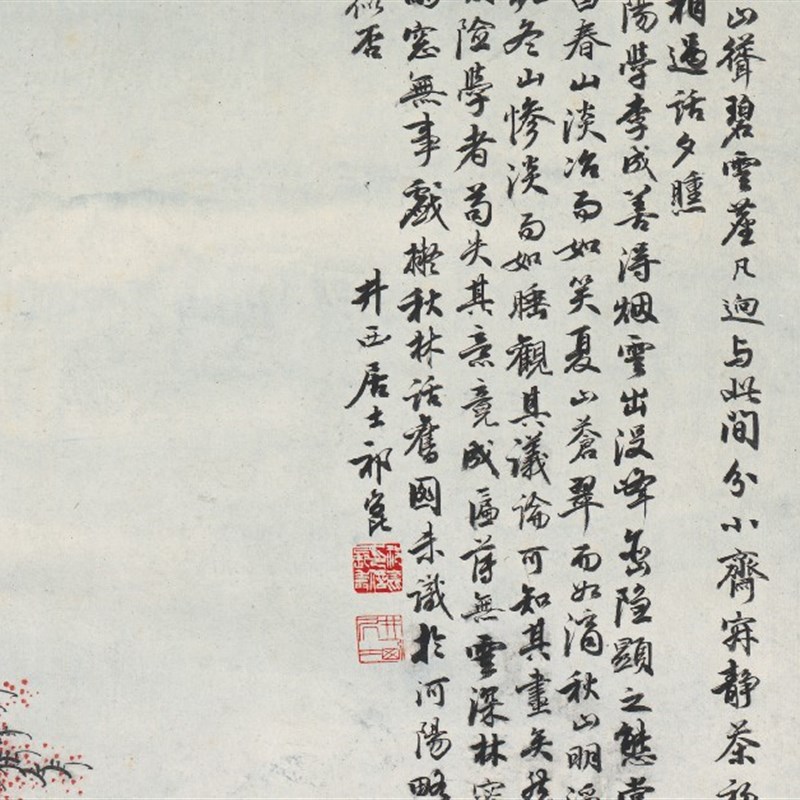 山聳碧雲崖凡迥与此间分小齋穽静茶初
相過話夕曛
陽學李成善得烟雲出沒峰巒隐顯之態嘗
春山淡冶而如笑夏山蒼翠而如滴秋山明淨
冬山慘淡而如睡觀其議論可知其畫矣然
險學者苟失其意竟成匾薄無雲深林密
窓無事戲擬秋林話舊圖未識於河陽略
似否
井西居士祁崑